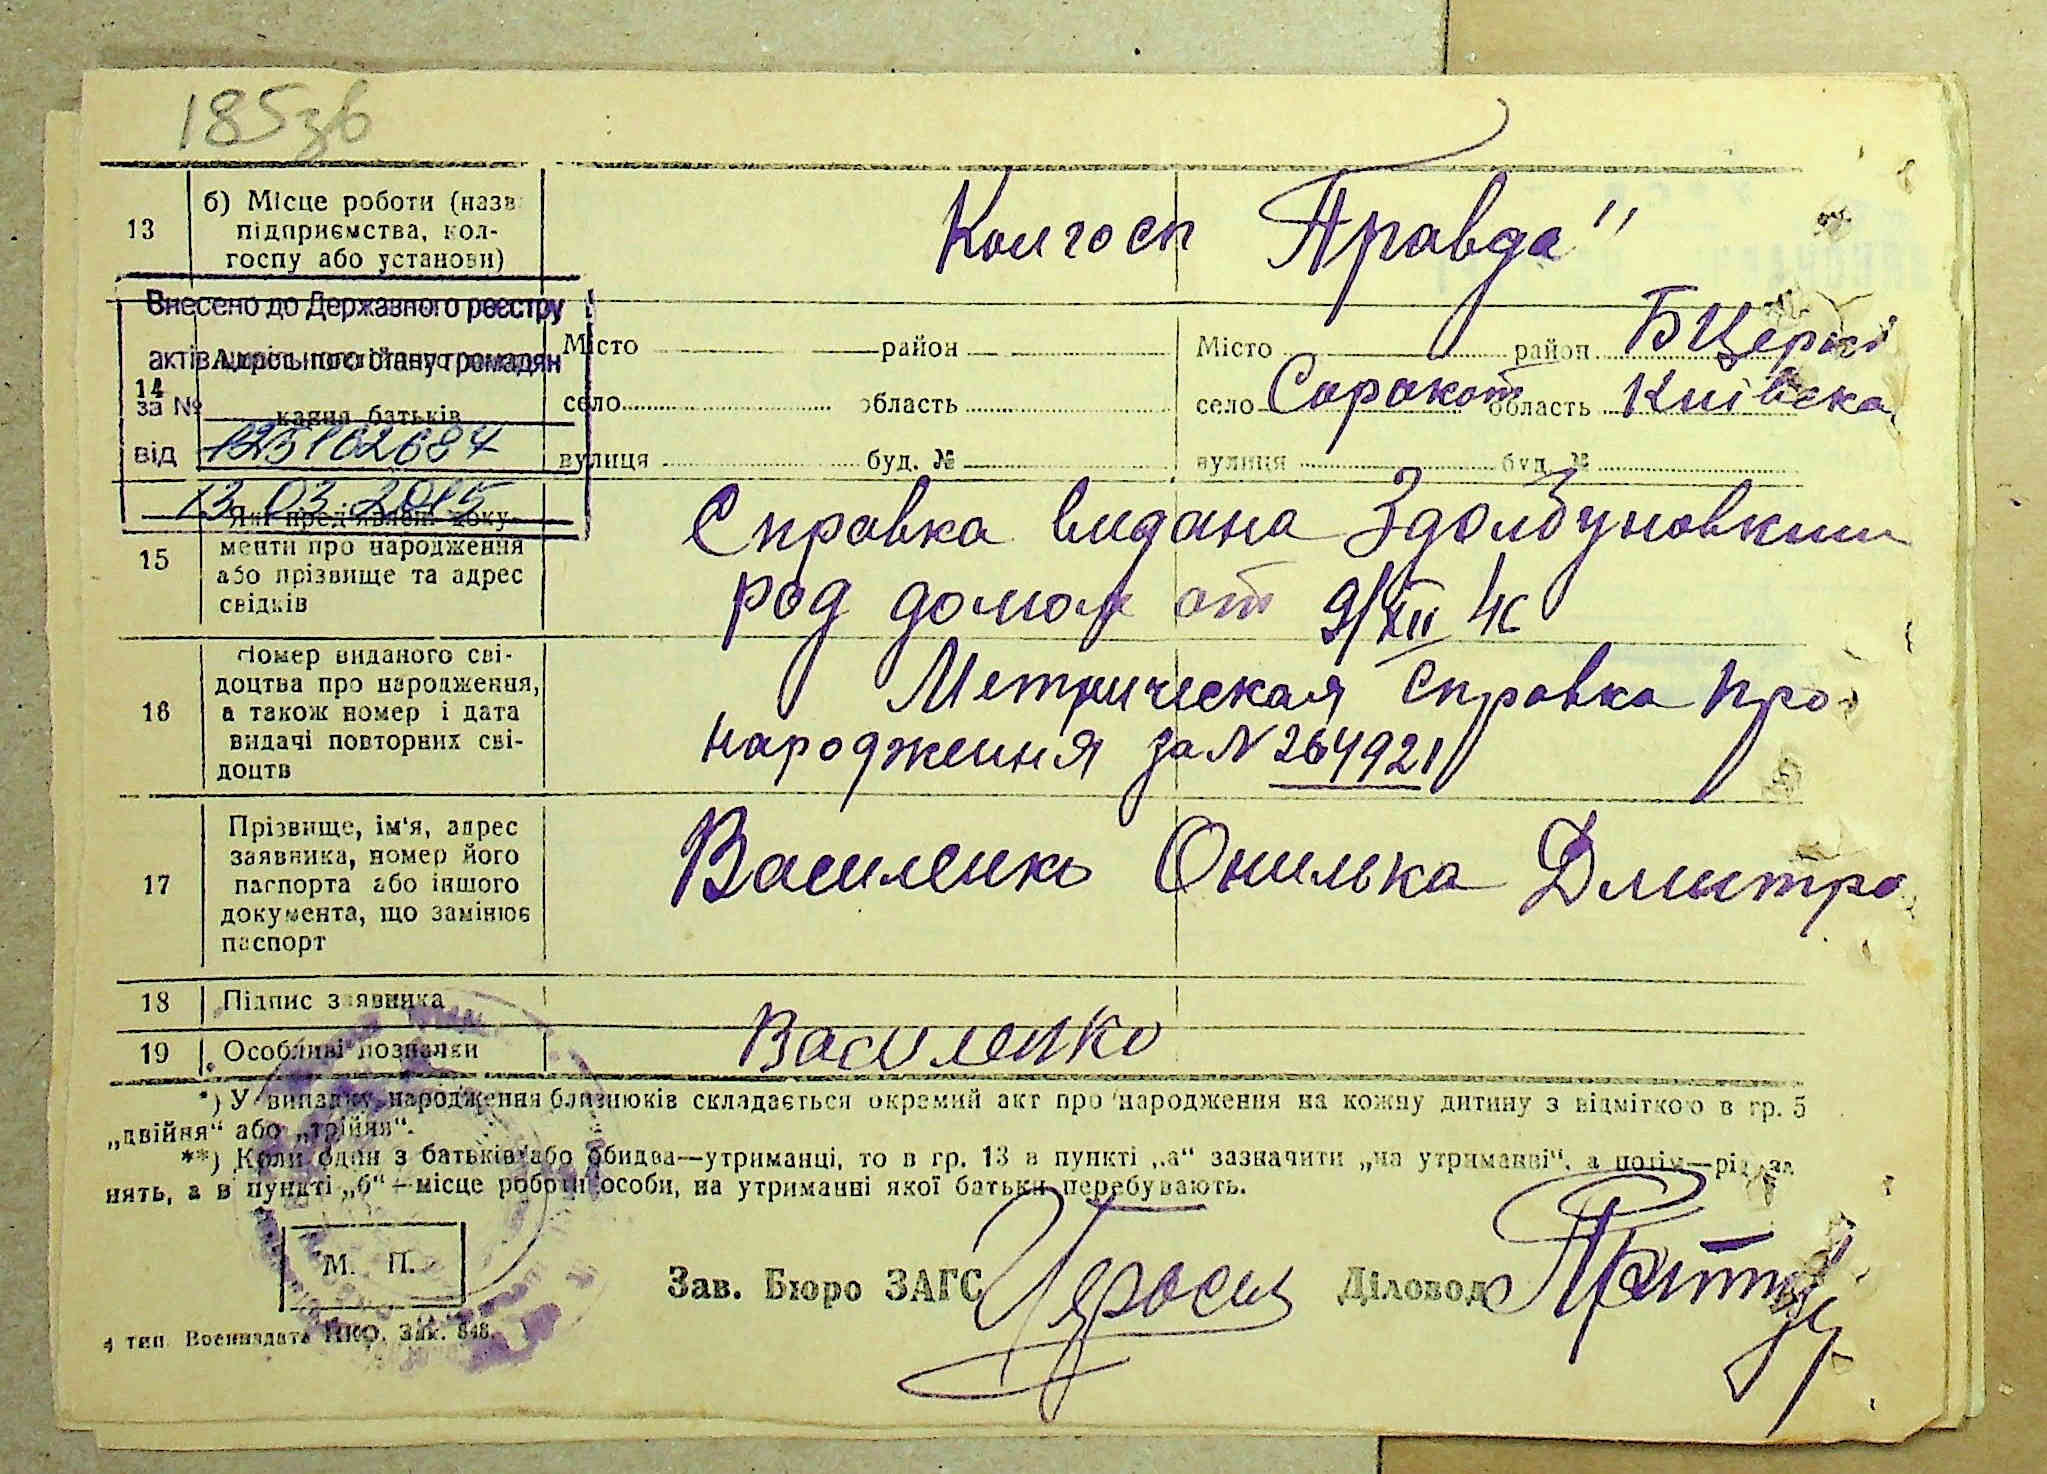 185зв
13
б) Місце роботи (назв
підприємства, кол-
госпу або установи)
Колгосп „Правда"
Внесено до Державного реєстру
актів цивільного стану громадян
за №
від
13.03.2015
14
каяна батьків
Місто район
село область
вулиця буд. №
Місто район БЦеркі
село Сорокот область Київска
вулиця буд. №
15
Які пред'явлені доку-
менти про народження
або прізвище та адрес
свідків
Справка видана Здолбуновким
род домом от 9/XII 46
16
Номер виданого сві-
доцтва про народження,
а також номер і дата
видачі повторних сві-
доцтв
Метрическая справка про
народження за N 264921
17
Прізвище, ім'я, адрес
заявника, номер його
паспорта або іншого
документа, що замінює
паспорт
Василенко Онилька Дмитро
18
Підпис заявника
19
Особливі позначки
Василенко
*) У випадку народження близнюків складається окремий акт про народження на кожну дитину з відміткою в гр. 5
„двійня“ або „трійня“.
**) Коли один з батьків або обидва—утриманці, то в гр. 13 в пункті „а“ зазначити „на утриманні“, а потім—рід за
нять, а в пункті „б“—місце роботи особи, на утриманні якої батьки перебувають.
М. П.
Зав. Бюро ЗАГС
Діловод
4 тип. Воениздата НКО. Зак. 848.